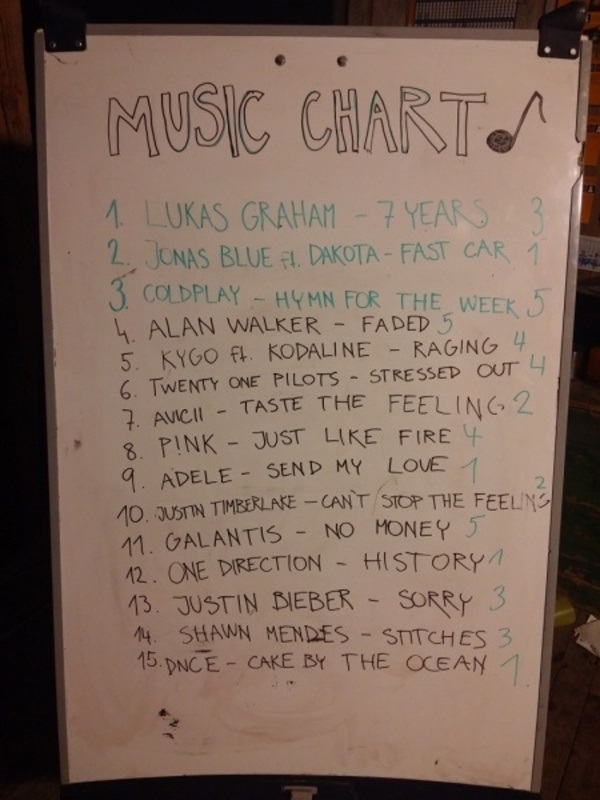 MUSIC CHART
1. LUKAS GRAHAM - 7 YEARS 3
2. JONAS BLUE ft. DAKOTA - FAST CAR 1
3. COLDPLAY - HYMN FOR THE WEEK 5
4. ALAN WALKER - FADED 5
5. KYGO ft. KODALINE - RAGING 4
6. TWENTY ONE PILOTS - STRESSED OUT 4
7. AVICII - TASTE THE FEELING 2
8. P!NK - JUST LIKE FIRE 4
9. ADELE - SEND MY LOVE 1
10. JUSTIN TIMBERLAKE - CAN'T STOP THE FEELING 2
11. GALANTIS - NO MONEY 5
12. ONE DIRECTION - HISTORY 1
13. JUSTIN BIEBER - SORRY 3
14. SHAWN MENDES - STITCHES 3
15. DNCE - CAKE BY THE OCEAN 1